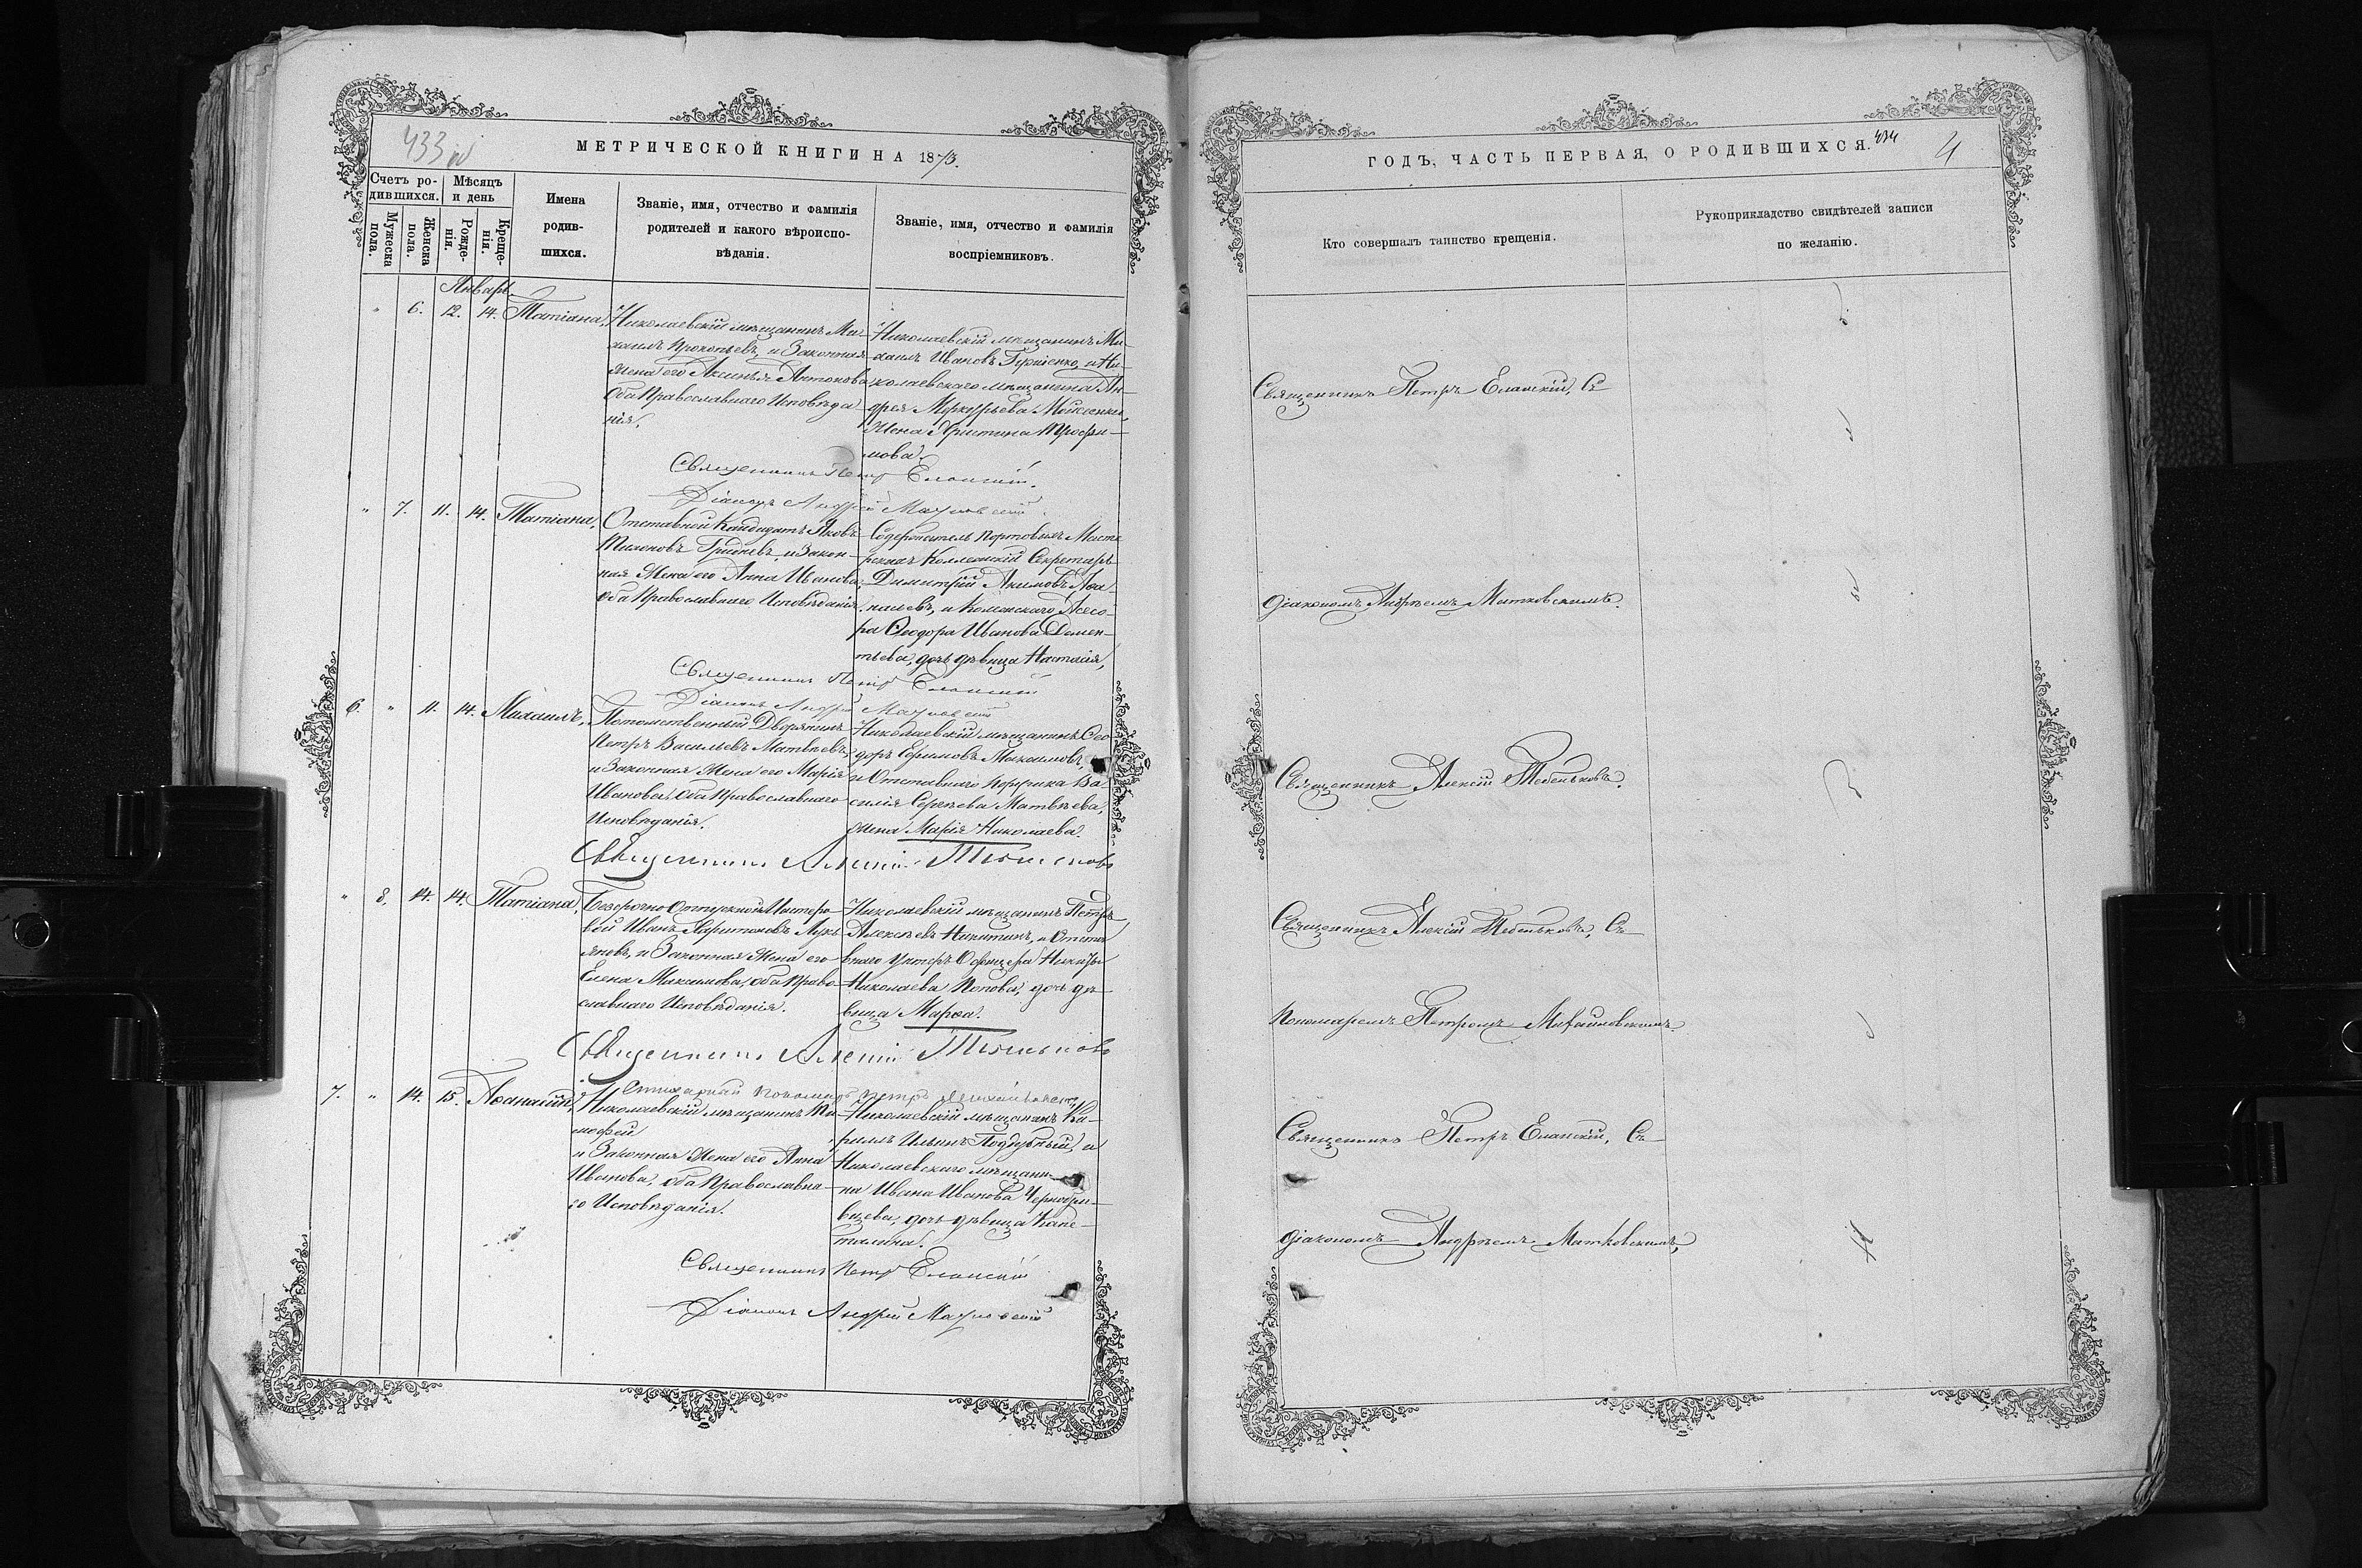 433
МЕТРИЧЕСКОЙ КНИГИ НА 1873.
Счетъ ро-
дившихся.
Мѣсяцъ
и день
Мужеска
пола.
Женска
пола.
Рожде-
нія.
Креще-
нія.
Имена
родив-
шихся.
Званіе, имя, отчество и фамилія
родителей и какого вѣроиспо-
вѣданія.
Званіе, имя, отчество и фамилія
воспріемниковъ.
Январь.
" 6. 12. 14. Татіана,
Николаевскій мѣщанинъ Ми-
хаилъ Прокопьевъ, и Законная
жена его Аксинья Антонова,
оба Православнаго Исповѣда
нія.
Николаевскій мѣщанинъ Ми-
хаилъ Ивановъ и Ни-
колаевскаго мѣщанина Ан-
дрея Меркурьева
жена Христина Трофи-
мова.
Священникъ Петръ Еланскій.
Діаконъ Андрей Матковскій.
" 7. 11. 14. Татіана,
Отставной Кандидатъ Яковъ
Тихоновъ Гридневъ, и Закон-
ная Жена его Анна Иванова,
оба Православнаго Исповѣданія.
Содержатель Портовыхъ Масте
рскихъ Коллежскій Секретарь
Димитрій Акимовъ Аѳа-
насьевъ, и
ра Ѳеодора Иванова Демен-
тьева, дочь дѣвица
Священникъ Петръ Еланскій
Діаконъ Андрей Матковскій
6. " 11. 14. Михаилъ,
Потомственный Дворянинъ
Петръ Васильевъ Матвѣевъ,
и Законная Жена его Марія
Иванова, оба Православнаго
Исповѣданія.
Николаевскій мѣщанинъ Ѳео
доръ Ефимовъ Максимовъ,
и Отставнаго Поручика Ва-
силія Сергѣева Матвѣева,
жена Марія Николаева.
Священникъ Алексій Тебеньковъ
" 8. 14. 14. Татіана,
Безсрочно Отпускной
вой Иванъ Харитоновъ Лукь
яновъ, и Законная Жена его
Елена Максимова, оба Право
славнаго Исповѣданія.
Николаевскій мѣщанинъ Петръ
Алексѣевъ Никитинъ, и Отста
внаго Унтеръ Офицера Никиты
Николаева Попова, дочь дѣ
вица Марѳа.
Священникъ Алексій Тебеньковъ
Стихарный Пономарь Петръ Михайловскій
7. " 14. 15. Аѳанасій,
Николаевскій мѣщанинъ Ти
мофей
и Законная Жена его Анна
Иванова, оба Православна-
го Исповѣданія.
Николаевскій мѣщанинъ Ки-
риллъ Ильинъ Поддубный, и
Николаевскаго мѣщани-
на Ивана Иванова Чернобри-
вцева, дочь дѣвица Капе-
талина.
Священникъ Петръ Еланскій
Діаконъ Андрей Матковскій
ГОДЪ, ЧАСТЬ ПЕРВАЯ, О РОДИВШИХСЯ.
434
4
Кто совершалъ таинство крещенія.
Рукоприкладство свидѣтелей записи
по желанію.
Священникъ Петръ Еланскій, Съ
Діакономъ Андреемъ Матковскимъ.
Священникъ Алексій Тебеньковъ.
Священникъ Алексій Тебеньковъ, Съ
Пономаремъ Петромъ Михайловскимъ.
Священникъ Петръ Еланскій, Съ
Діакономъ Андреемъ Матковскимъ,